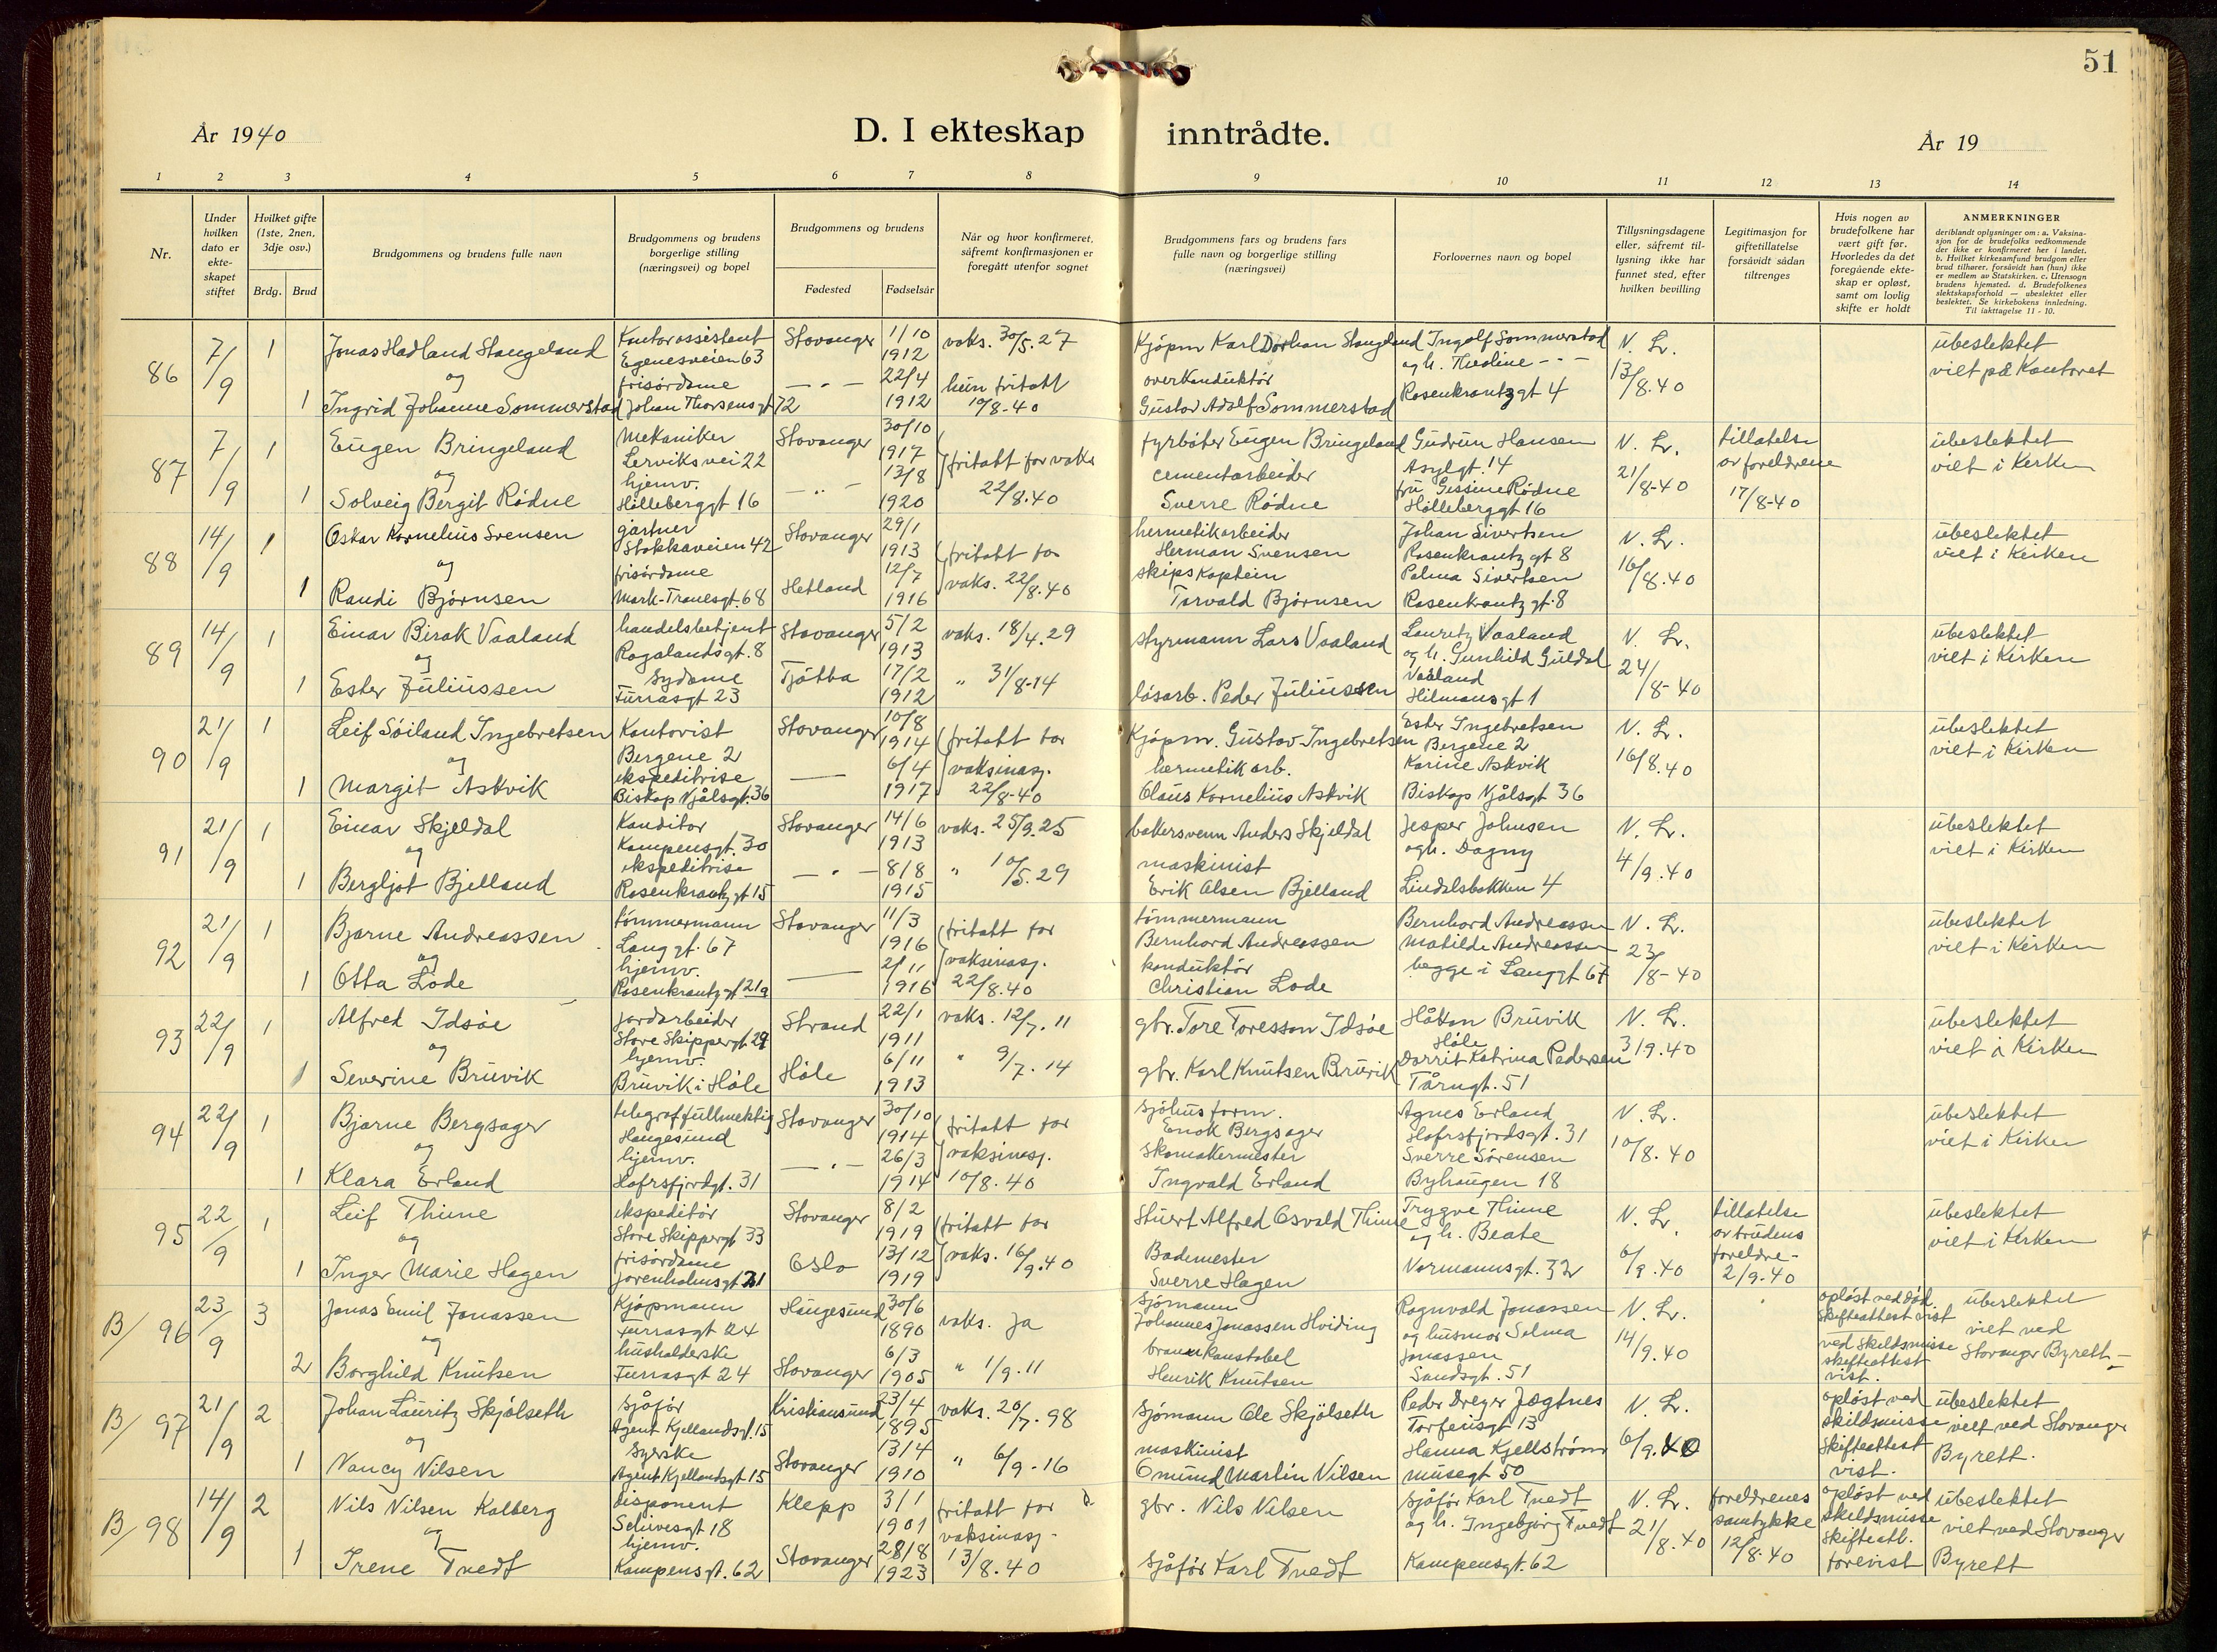 51
År 1940
D. I ekteskap inntrådte.
År 19
1 2 3 4 5 6 7 8 9 10 11 12 13 14
Nr.
Under hvilken dato er ekte-skapet stiftet
Hvilket gifte (1ste, 2nen, 3dje osv.)
Brdg. Brud
Brudgommens og brudens fulle navn
Brudgommens og brudens borgerlige stilling (næringsvei) og bopel
Brudgommens og brudens
Fødested Fødselsår
Når og hvor konfirmeret, såfremt konfirmasjonen er foregått utenfor sognet
Brudgommens fars og brudens fars fulle navn og borgerlige stilling (næringsvei)
Forlovernes navn og bopel
Tillysningsdagene eller, såfremt til-lysning ikke har funnet sted, efter hvilken bevilling
Legitimasjon for giftetillatelse forsåvidt sådan tiltrenges
Hvis nogen av brudefolkene har vært gift før. Hvorledes da det foregående ekte-skap er opløst, samt om lovlig skifte er holdt
ANMERKNINGER
deriblandt oplysninger om: a. Vaksina-sjon for de brudefolks vedkommende der ikke er konfirmeret her i landet. b. Hvilket kirkesamfund brudgom eller brud tilhører, forsåvidt han (hun) ikke er medlem av Statskirken. c. Utensogn brudens hjemsted. d. Brudefolkenes slektskapsforhold — ubeslektet eller beslektet. Se kirkebokens innledning. Til iakttagelse 11 - 10.
86 7/9 1 Jonas Hadland Stangeland Kontorassistent Egenesveien 63 Stavanger 1/10 1912 vaks. 30/5.27 Kjøpm Karl Dorhan Stangeland Ingolf Sommerstad og h. Theoline - - - N. Kr. 13/8.40 ubeslektet viet på Kontoret
og
1 Ingrid Johanne Sommerstad frisørdame Johan Thorsensgt 72 — " — 22/4 1912 hun fritatt 19/8-40 overkonduktør Gustav Adolf Sommerstad Rosenkrantzgt 4
87 7/9 1 Eugen Bringeland Mekaniker Lerviksvei 22 Stavanger 30/10 1917 fritatt for vaks 22/8.40 fyrbøter Eugen Bringeland Gudrun Hansen Asylgt. 14 N. Kr. 21/8-40 tillatelse av foreldrene 17/8-40 ubeslektet viet i Kirken
og
1 Solveig Bergit Rødne hjemv. Hilleberggt 16 — " — 13/8 1920 cementarbeider Sverre Rødne fru Gessine Rødne Hilleberggt 16
88 14/9 1 Oskar Kornelius Svensen gartner Stokkaveien 42 Stavanger 29/1 1913 fritatt for vaks. 22/8.40 hermetikarbeider Herman Svensen Johan Sivertsen Rosenkrantzgt 8 N. Kr. 16/8.40 ubeslektet viet i Kirken
og
1 Randi Bjørnsen frisørdame Mark-Tranesgt. 68 Hetland 12/7 1916 skipskaptein Torvald Bjørnsen Palma Sivertsen Rosenkrantzgt. 8
89 14/9 1 Einar Birak Vaaland handelsbetjent Rogalandsgt. 8 Stavanger 5/2 1913 vaks. 18/4.29 styrmann Lars Vaaland Lauritz Vaaland og h. Gunhild Guldal Vaaland Hilmansgt 1 N. Kr. 24/8-40 ubeslektet viet i Kirken
og
1 Ester Juliussen Sydame Furrasgt 23 Tjøtta 17/2 1912 " 31/8-14 løsarb. Peder Juliussen
90 21/9 1 Leif Søiland Ingebretsen Kontorist Bergene 2 Stavanger 10/8 1914 fritatt for vaksinasj. 22/8-40 Kjøpm. Gustav Ingebretsen Ester Ingebretsen Bergene 2 N. Kr. 16/8.40 ubeslektet viet i Kirken
og
1 Margit Askvik ekspeditrise Biskop Njålsgt. 36 — 6/4 1917 hermetikarb. Olaus Kornelius Askvik Karine Askvik Biskop Njålsgt 36
91 21/9 1 Einar Skjeldal Konditor Kampensgt. 30 Stavanger 14/6 1913 vaks. 25/9.25 bakersvenn Anders Skjeldal Jesper Johnsen og h. Dagny Lindalsbakken 4 N. Kr. 4/9.40 ubeslektet viet i Kirken
og
1 Bergljot Bjelland ekspeditrise Rosenkrantzgt 15 — " — 8/8 1915 " 10/5.29 maskinist Erik Olsen Bjelland
92 21/9 1 Bjarne Andreassen tømmermann Langgt. 67 Stavanger 11/3 1916 fritatt for vaksinasj. 22/8.40 tømmermann Bernhard Andreassen Bernhard Andreassen Matilde Andreassen begge i Langgt 67 N. Kr. 23/8-40 ubeslektet viet i Kirken
og
1 Otta Lode hjemv. Rosenkrantzgt 21a — 2/11 1916 konduktør Christian Lode
93 22/9 1 Alfred Idsøe jordarbeider Store Skippergt. 29 Strand 22/1 1911 vaks. 12/7.11 gbr. Tore Toresson Idsøe Håkon Bruvik Høle N. Kr. 3/9.40 ubeslektet viet i Kirken
og
1 Severine Bruvik hjemv. Bruvik i Høle Høle 6/11 1913 " 9/7.14 gbr. Karl Knutsen Bruvik Dorrit Katrina Pedersen Tårngt. 51
94 22/9 1 Bjarne Bergsager telegraffullmektig Haugesund Stavanger 30/10 1914 fritatt for vaksinasj. 10/8.40 sjøhusform. Enok Bergsager Agnes Erland Hafrsfjordsgt. 31 N. Kr. 10/8.40 ubeslektet viet i Kirken
og
1 Klara Erland hjemv. Hafrsfjordgt. 31 — " — 26/3 1914 skomakermester Ingvald Erland Sverre Sørensen Byhaugen 18
95 22/9 1 Leif Thime ekspeditør Store Skippergt 33 Stavanger 8/2 1919 fritatt for vaks. 16/9.40 Stuert Alfred Osvald Thime Trygve Thime og h. Beate Normannsgt. 32 N. Kr. 6/9.40 tillatelse av brudens foreldre - 2/9.40 ubeslektet viet i Kirken
og
1 Inger Marie Hagen frisørdame Jorenholmsgt 21 Oslo 13/12 1919 Bademester Sverre Hagen
B/96 23/9 3 Jonas Emil Jonassen Kjøpmann Furrasgt 24 Haugesund 30/6 1890 vaks. ja Sjømann Johannes Jonassen Hviding Ragnvald Jonassen og husmor Selma Jonassen Sandsgt. 51 N. Kr. 14/9.40 opløst ved død. Skifteattest vist ved skilsmisse skifteattest vist. ubeslektet viet ved Stavanger Byrett
og
2 Borghild Knutsen husholderske Furrasgt 24 Stavanger 6/3 1905 " 1/9.11 brannkonstabel Henrik Knutsen
B/97 21/9 2 Johan Lauritz Skjølseth Sjåfør Agent Kjellandsgt. 15 Kristiansund 23/4 1895 vaks. 20/7.98 Sjømann Ole Skjølseth Peder Dreyer Jægtnes Torfeusgt 13 N. Kr. 6/9.40 opløst ved skildsmisse skifteattest vist. ubeslektet viet ved Stavanger Byrett.
og
1 Nancy Nilsen Syerske Agent Kjellandsgt 15 Stavanger 13/4 1910 " 6/9-16 maskinist Omund Martin Nilsen Hanna Kjellstrøm Musegt 50
B/98 14/9 2 Nils Nilsen Kalberg disponent Schivesgt 18 Klepp 3/1 1901 fritatt for vaksinasj. 13/8.40 gbr. Nils Nilsen sjåfør Karl Tvedt og h. Ingebjørg Tvedt Kampensgt. 62 N. Kr. 21/8.40 foreldrenes samtykke 12/8.40 opløst ved skildsmisse skifteatt. forevist ubeslektet viet ved Stavanger Byrett
og
1 Irene Tvedt hjemv. Kampensgt. 62 Stavanger 28/8 1923 sjåfør Karl Tvedt